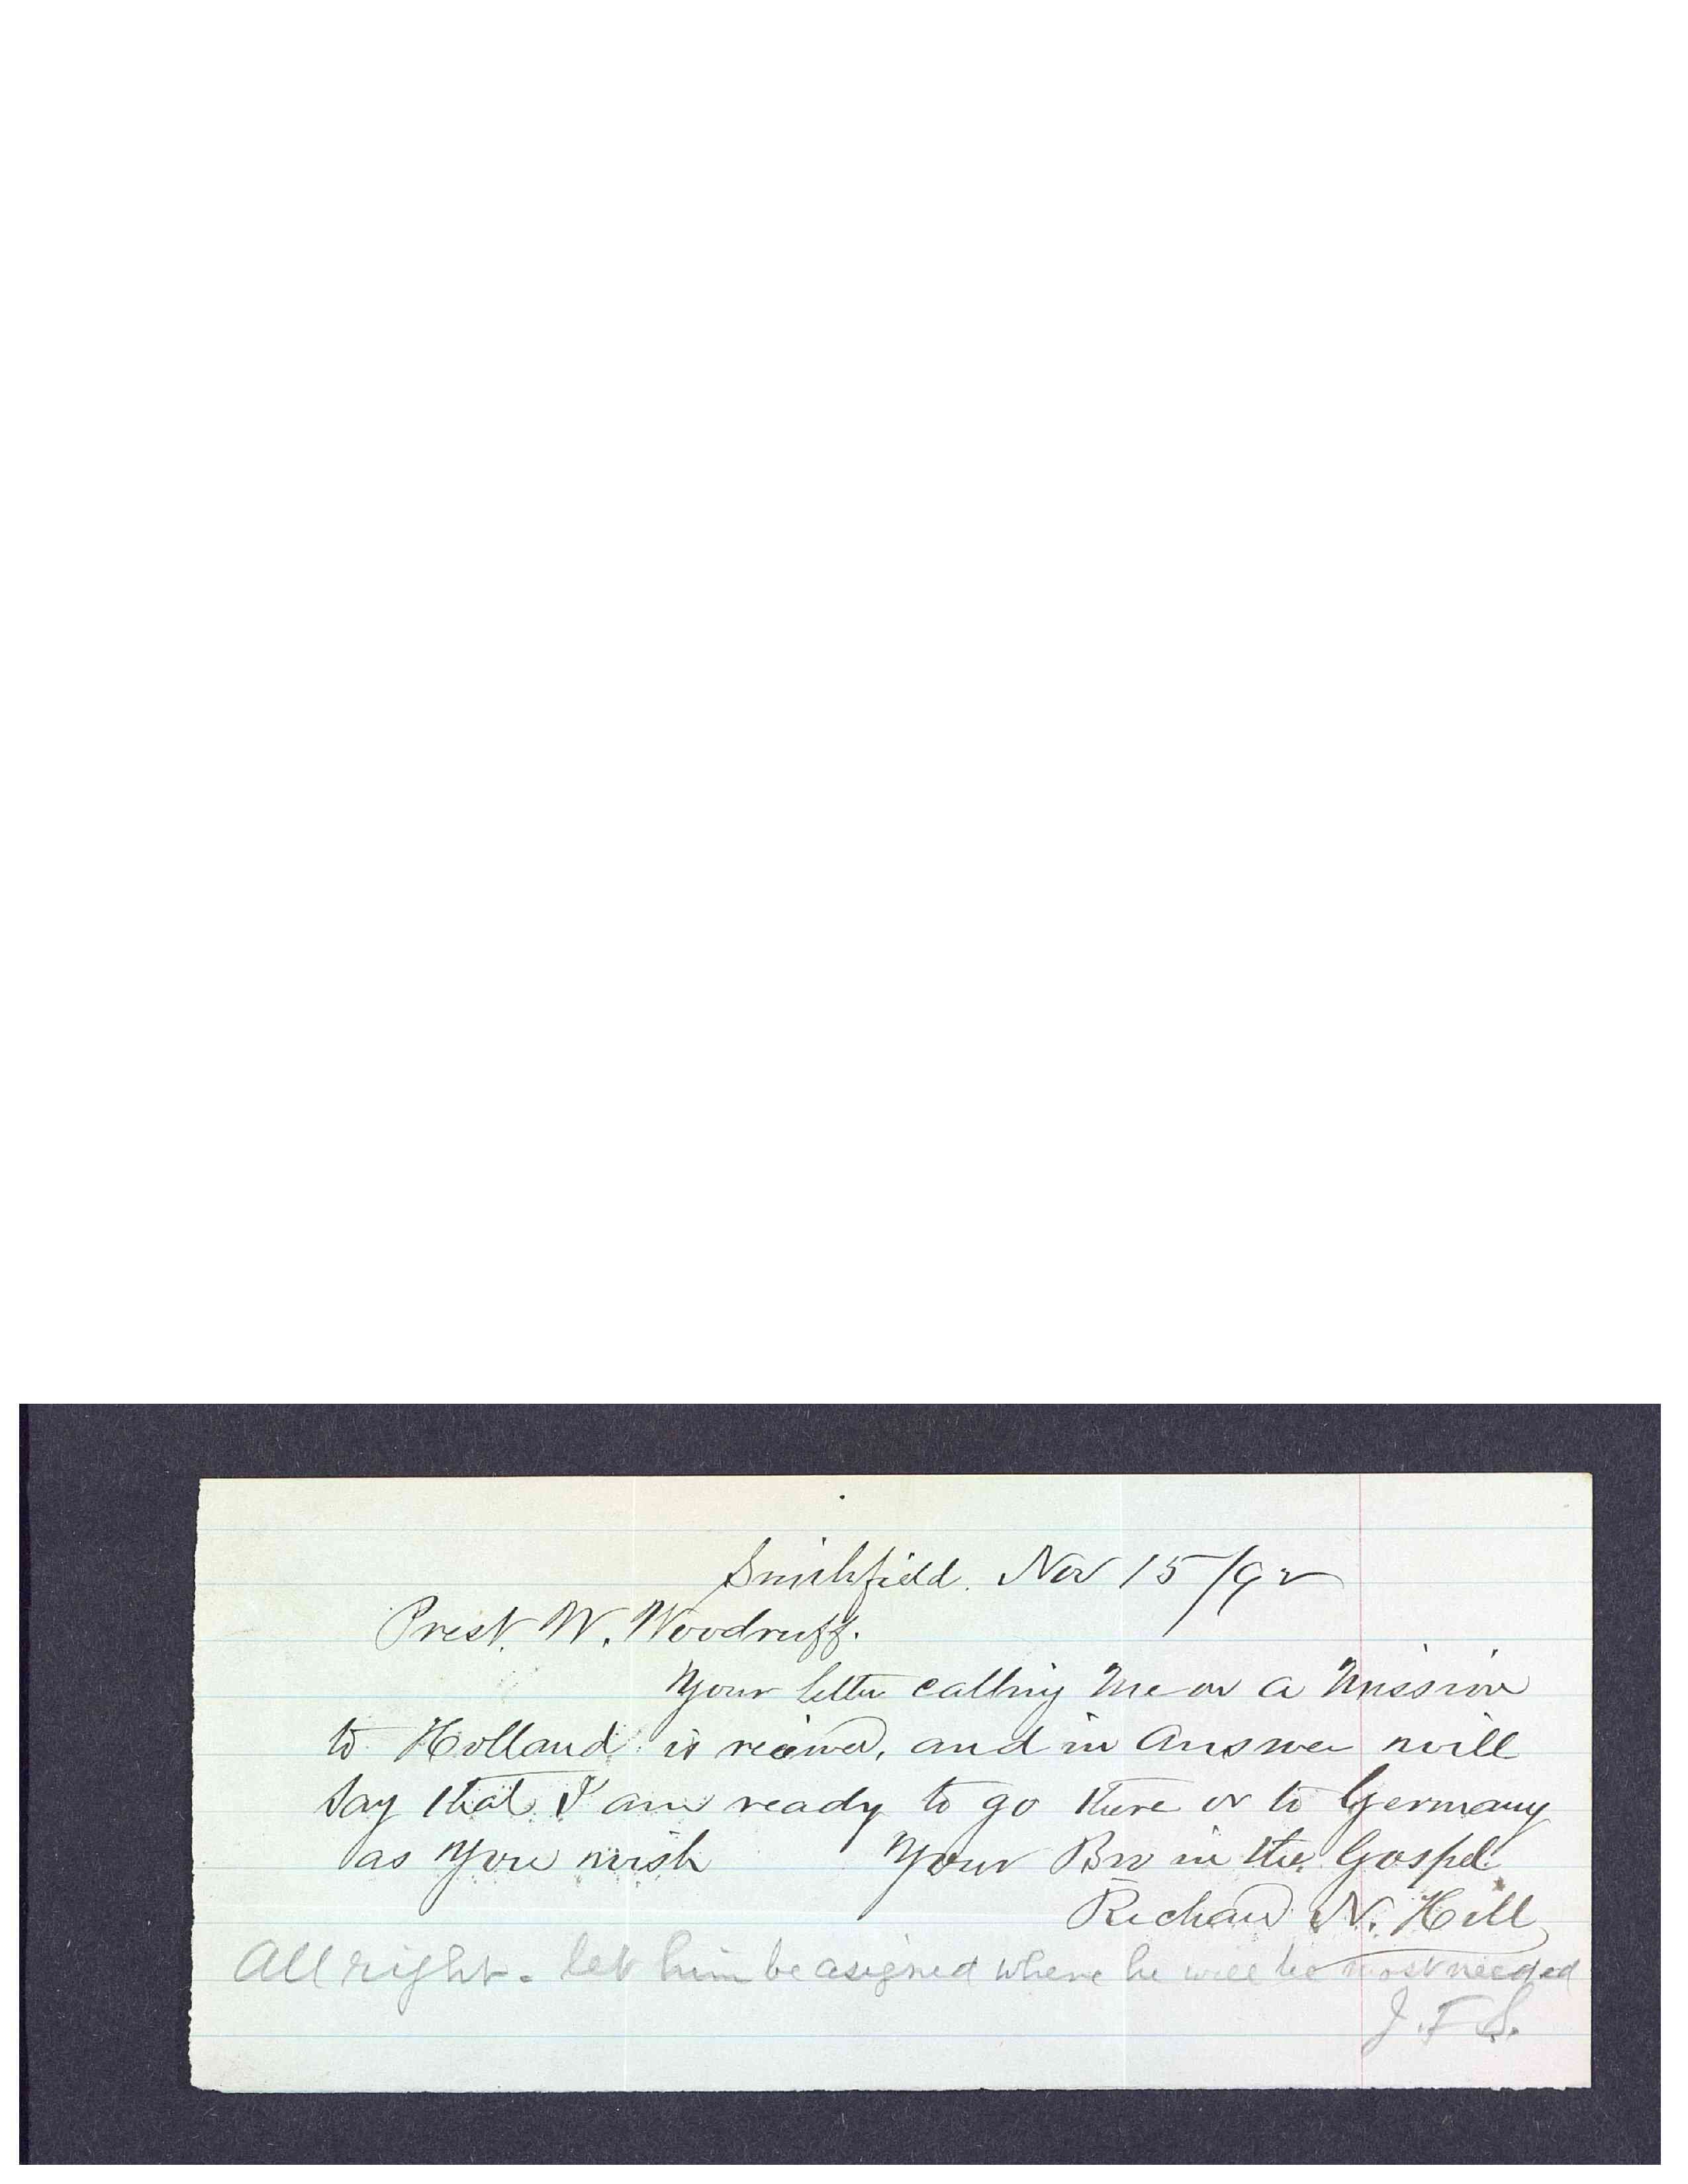 Smithfield. Nov 15/92
Prest. W. Woodruff.
Your letter calling me on a Mission
to Holland is recived, and in Answer will
say that I am ready to go there or to Germany
as you wish Your Bro in the Gospel
Richard N. Hill
All right - let him be asigned where he will be most needed
J. F. S.